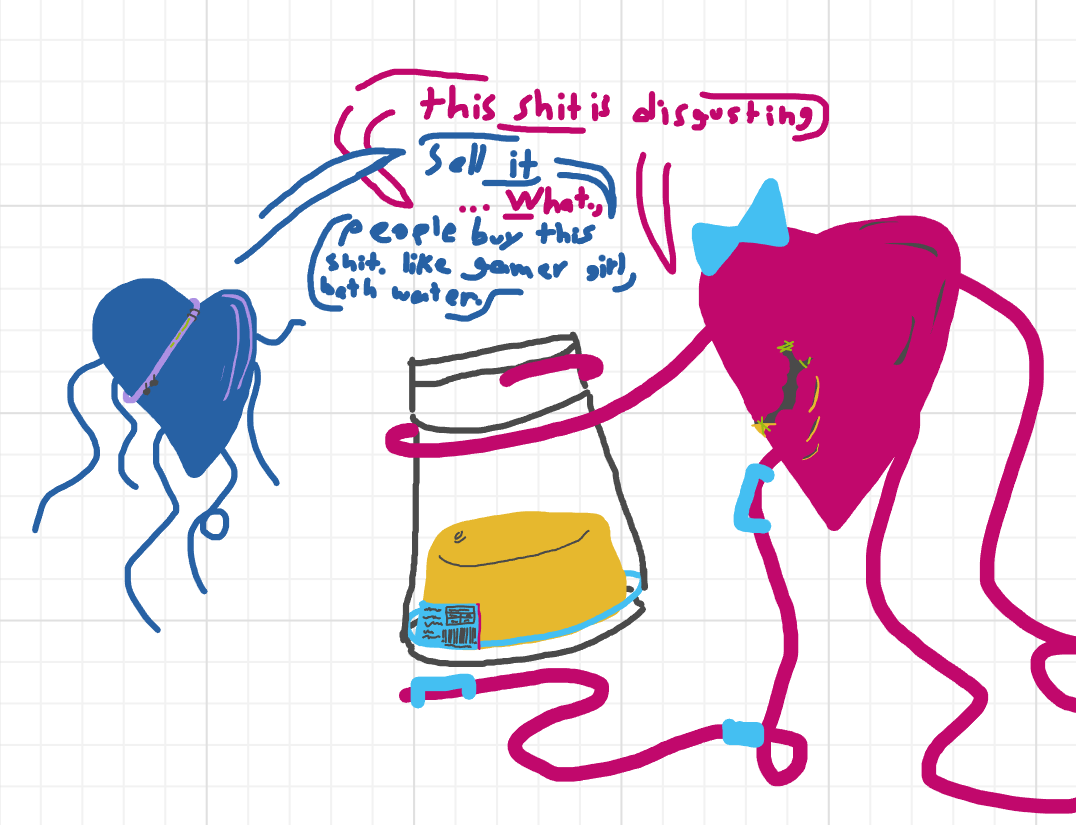 this shit is disgusting
Sell it
... What.,
people buy this
shit. like gamer girl,
bath water.